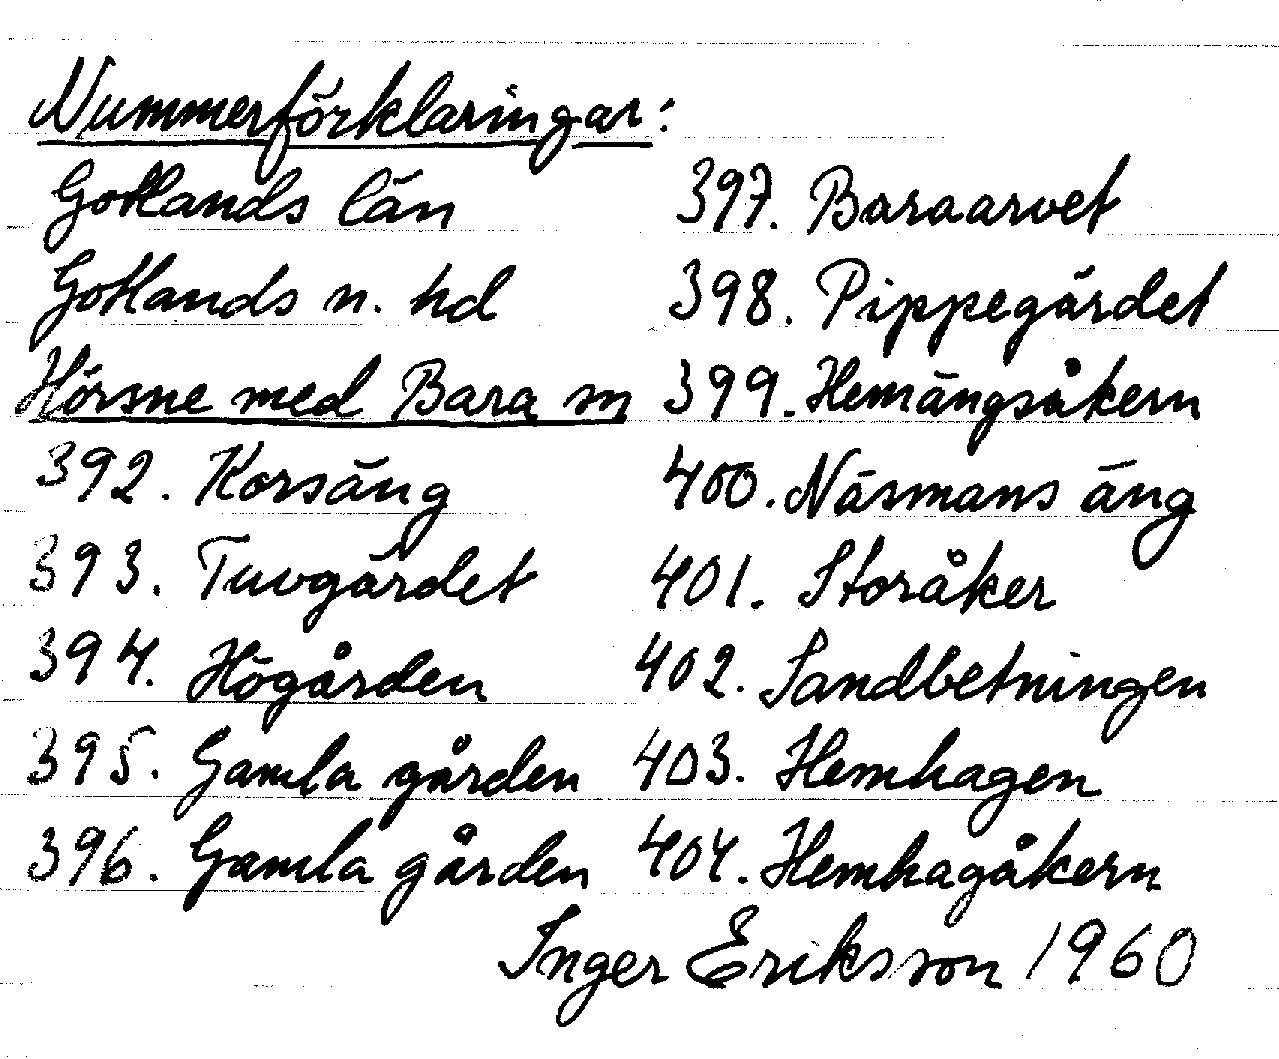 Nummerförklaringar:
Gotlands län
Gotlands n. hd
Hörsne med Bara sn
392. Korsäng
393. Tuvgärdet
394. Högården
395. Gamla gården
396. Gamla gården
397. Baraarvet
398. Pippegärdet
399. Hemängsåkern
400. Näsmans äng
401. Storåker
402. Sandbetningen
403. Hemhagen
404. Hemhagåkern
Inger Eriksson 1960